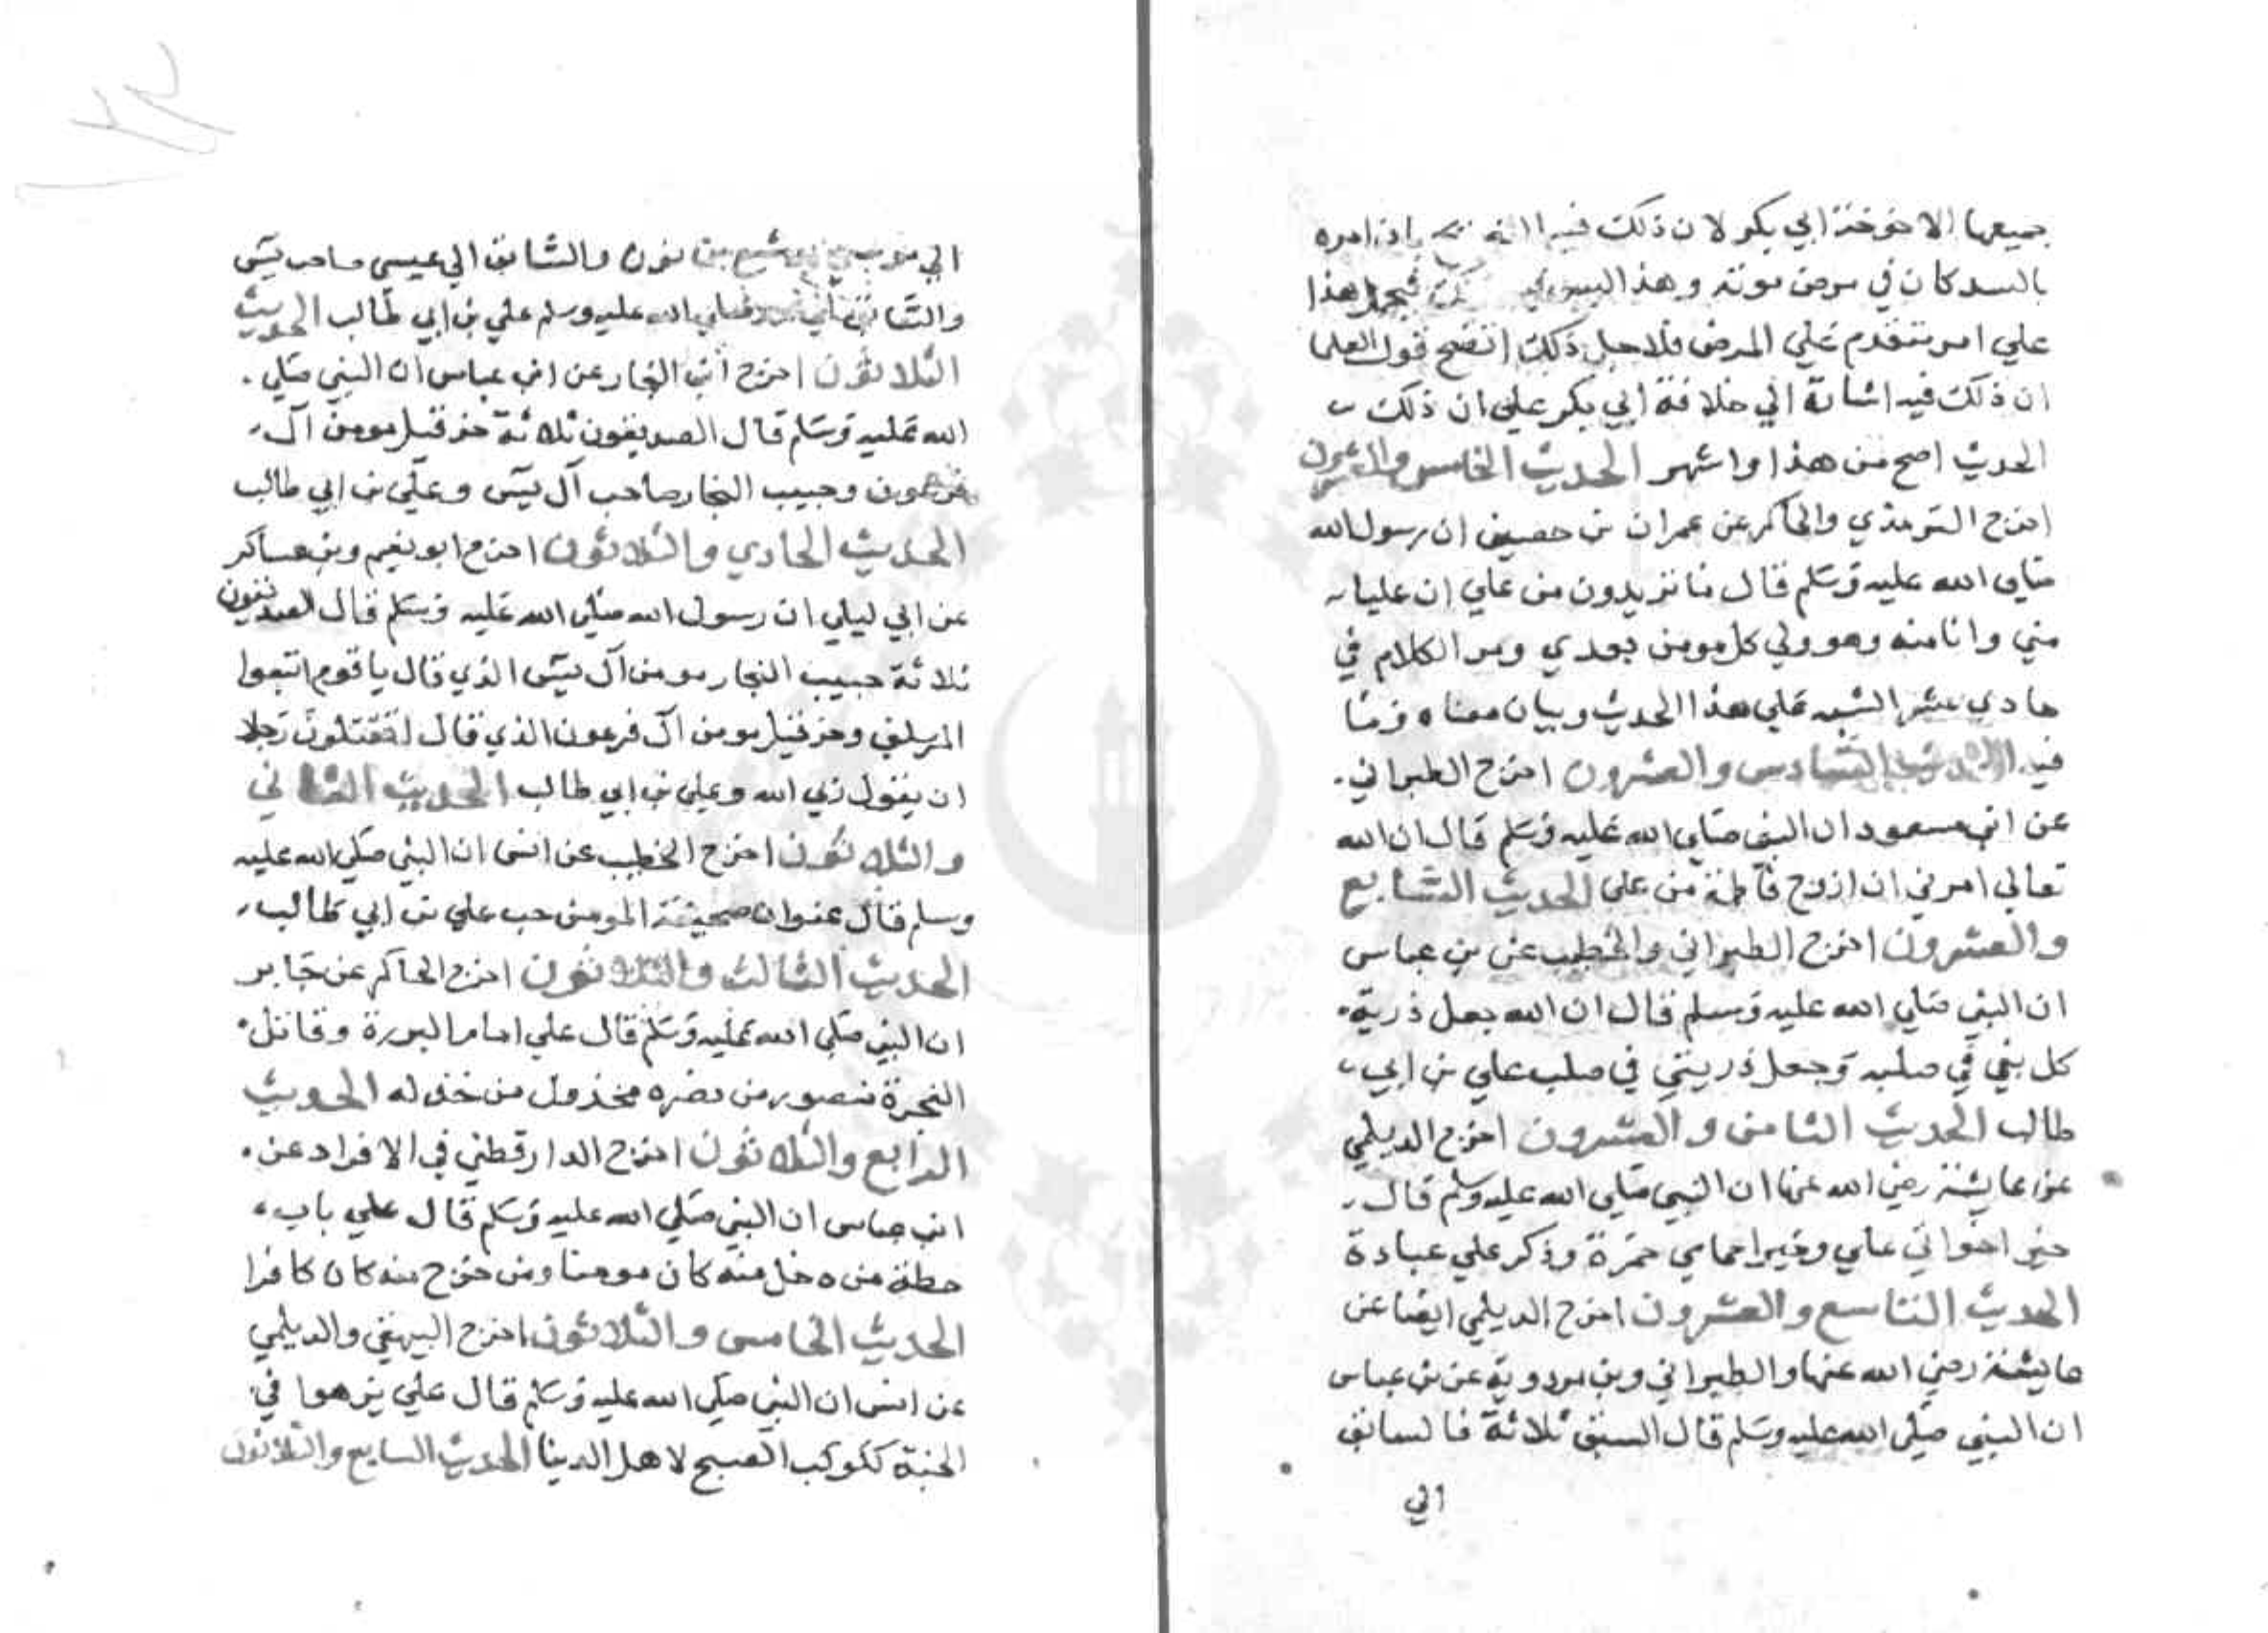 جميعها الا خوخة ابي بكر لان ذلك فيه امره
بالسد كان في مرض موته وهذا فيحمل هذا
علي امر متقدم علي المرض فلاجل ذلك اتضح قول العلما
ان ذلك فيه اشارة الي خلافة ابي بكر علي ان ذلك
الحديث اصح من هذا واشهر الحديث الخامس والعشرون
اخرج الترمذي والحاكم عن عمران بن حصين ان رسول الله
صلي الله عليه وسلم قال ما تريدون من علي ان عليا
مني وانا منه وهو ولي كل مومن بعدي ومر الكلام في
حادي عشر الشبه علي هذا الحديث وبيان معناه وما
فيه الحديث السادس والعشرون اخرج الطبراني
عن ابن مسعود ان النبي صلي الله عليه وسلم قال ان الله
تعالي امرني ان ازوج فاطمة من علي الحديث السابع
والعشرون اخرج الطبراني والخطيب عن بن عباس
ان النبي صلي الله عليه وسلم قال ان الله جعل ذرية
كل نبي في صلبه وجعل ذريتي في صلب علي بن ابي
طالب الحديث الثامن والعشرون اخرج الديلمي
عن عايشة رضي الله عنها ان النبي صلي الله عليه وسلم قال
خير اخواني علي وخير اعمامي حمزة وذكر علي عبادة
الحديث التاسع والعشرون اخرج الديلمي ايضا عن
عايشة رضي الله عنها والطبراني وبن مردوية عن بن عباس
ان النبي صلي الله عليه وسلم قال السبق ثلاثة فالسابق
الي
الي يوشع بن نون والسابق الي عيسي صاحب يس
والسابق الي صلي الله عليه وسلم علي بن ابي طالب الحديث
الثلاثون اخرج ابن النجار عن ابن عباس ان النبي صلي
الله عليه وسلم قال الصديقون ثلاثة حزقيل مومن آل
فرعون وحبيب النجار صاحب آل يس وعلي بن ابي طالب
الحديث الحادي والثلاثون اخرج ابو نعيم وبن عساكر
عن ابي ليلي ان رسول الله صلي الله عليه وسلم قال الصديقون
ثلاثة حبيب النجار مومن آل يس الذي قال يا قوم اتبعوا
المرسلين وحزقيل مومن آل فرعون الذي قال اتقتلون رجلا
ان يقول ربي الله وعلي بن ابي طالب الحديث الثاني
والثلاثون اخرج الخطيب عن انس ان النبي صلي الله عليه
وسلم قال عنوان صحيفة المومن حب علي بن ابي طالب
الحديث الثالث والثلاثون اخرج الحاكم عن جابر
ان النبي صلي الله عليه وسلم قال علي امام البررة وقاتل
الفجرة منصور من نصره مخذول من خذله الحديث
الرابع والثلاثون اخرج الدارقطني في الافراد عن
ابن عباس ان النبي صلي الله عليه وسلم قال علي باب
حطة من دخل منه كان مومنا ومن خرج منه كان كافرا
الحديث الخامس والثلاثون اخرج البيهقي والديلمي
عن انس ان النبي صلي الله عليه وسلم قال علي يزهوا في
الجنة ككوكب الصبح لاهل الدينا الحديث السابع والثلاثون